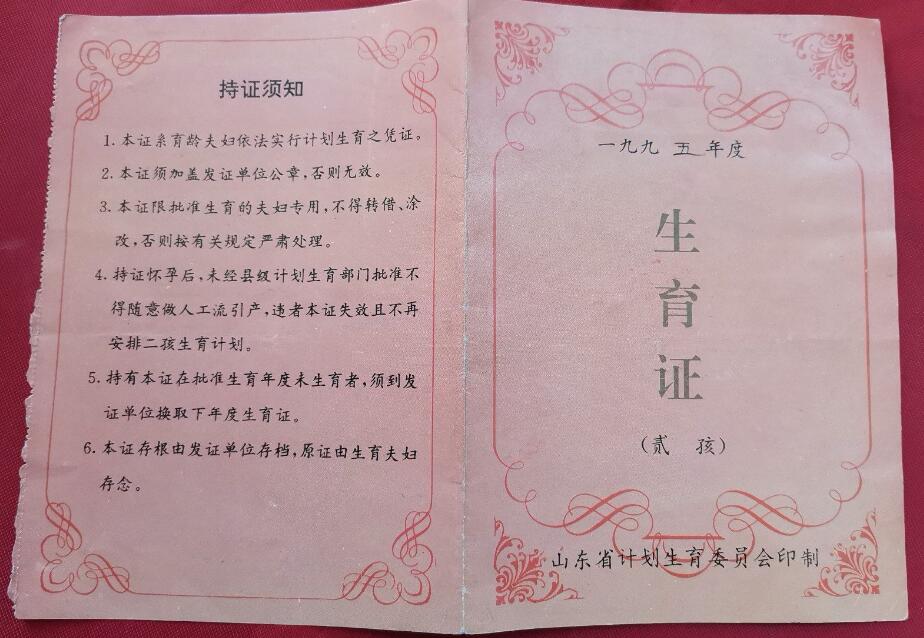 持证须知
1. 本证系育龄夫妇依法实行计划生育之凭证。
2. 本证须加盖发证单位公章，否则无效。
3. 本证限批准生育的夫妇专用，不得转借、涂
改，否则按有关规定严肃处理。
4. 持证怀孕后，未经县级计划生育部门批准不
得随意做人工流引产，违者本证失效且不再
安排二孩生育计划。
5. 持有本证在批准生育年度未生育者，须到发
证单位换取下年度生育证。
6. 本证存根由发证单位存档，原证由生育夫妇
存念。
一九九五年度
生
育
证
（贰 孩）
山东省计划生育委员会印制